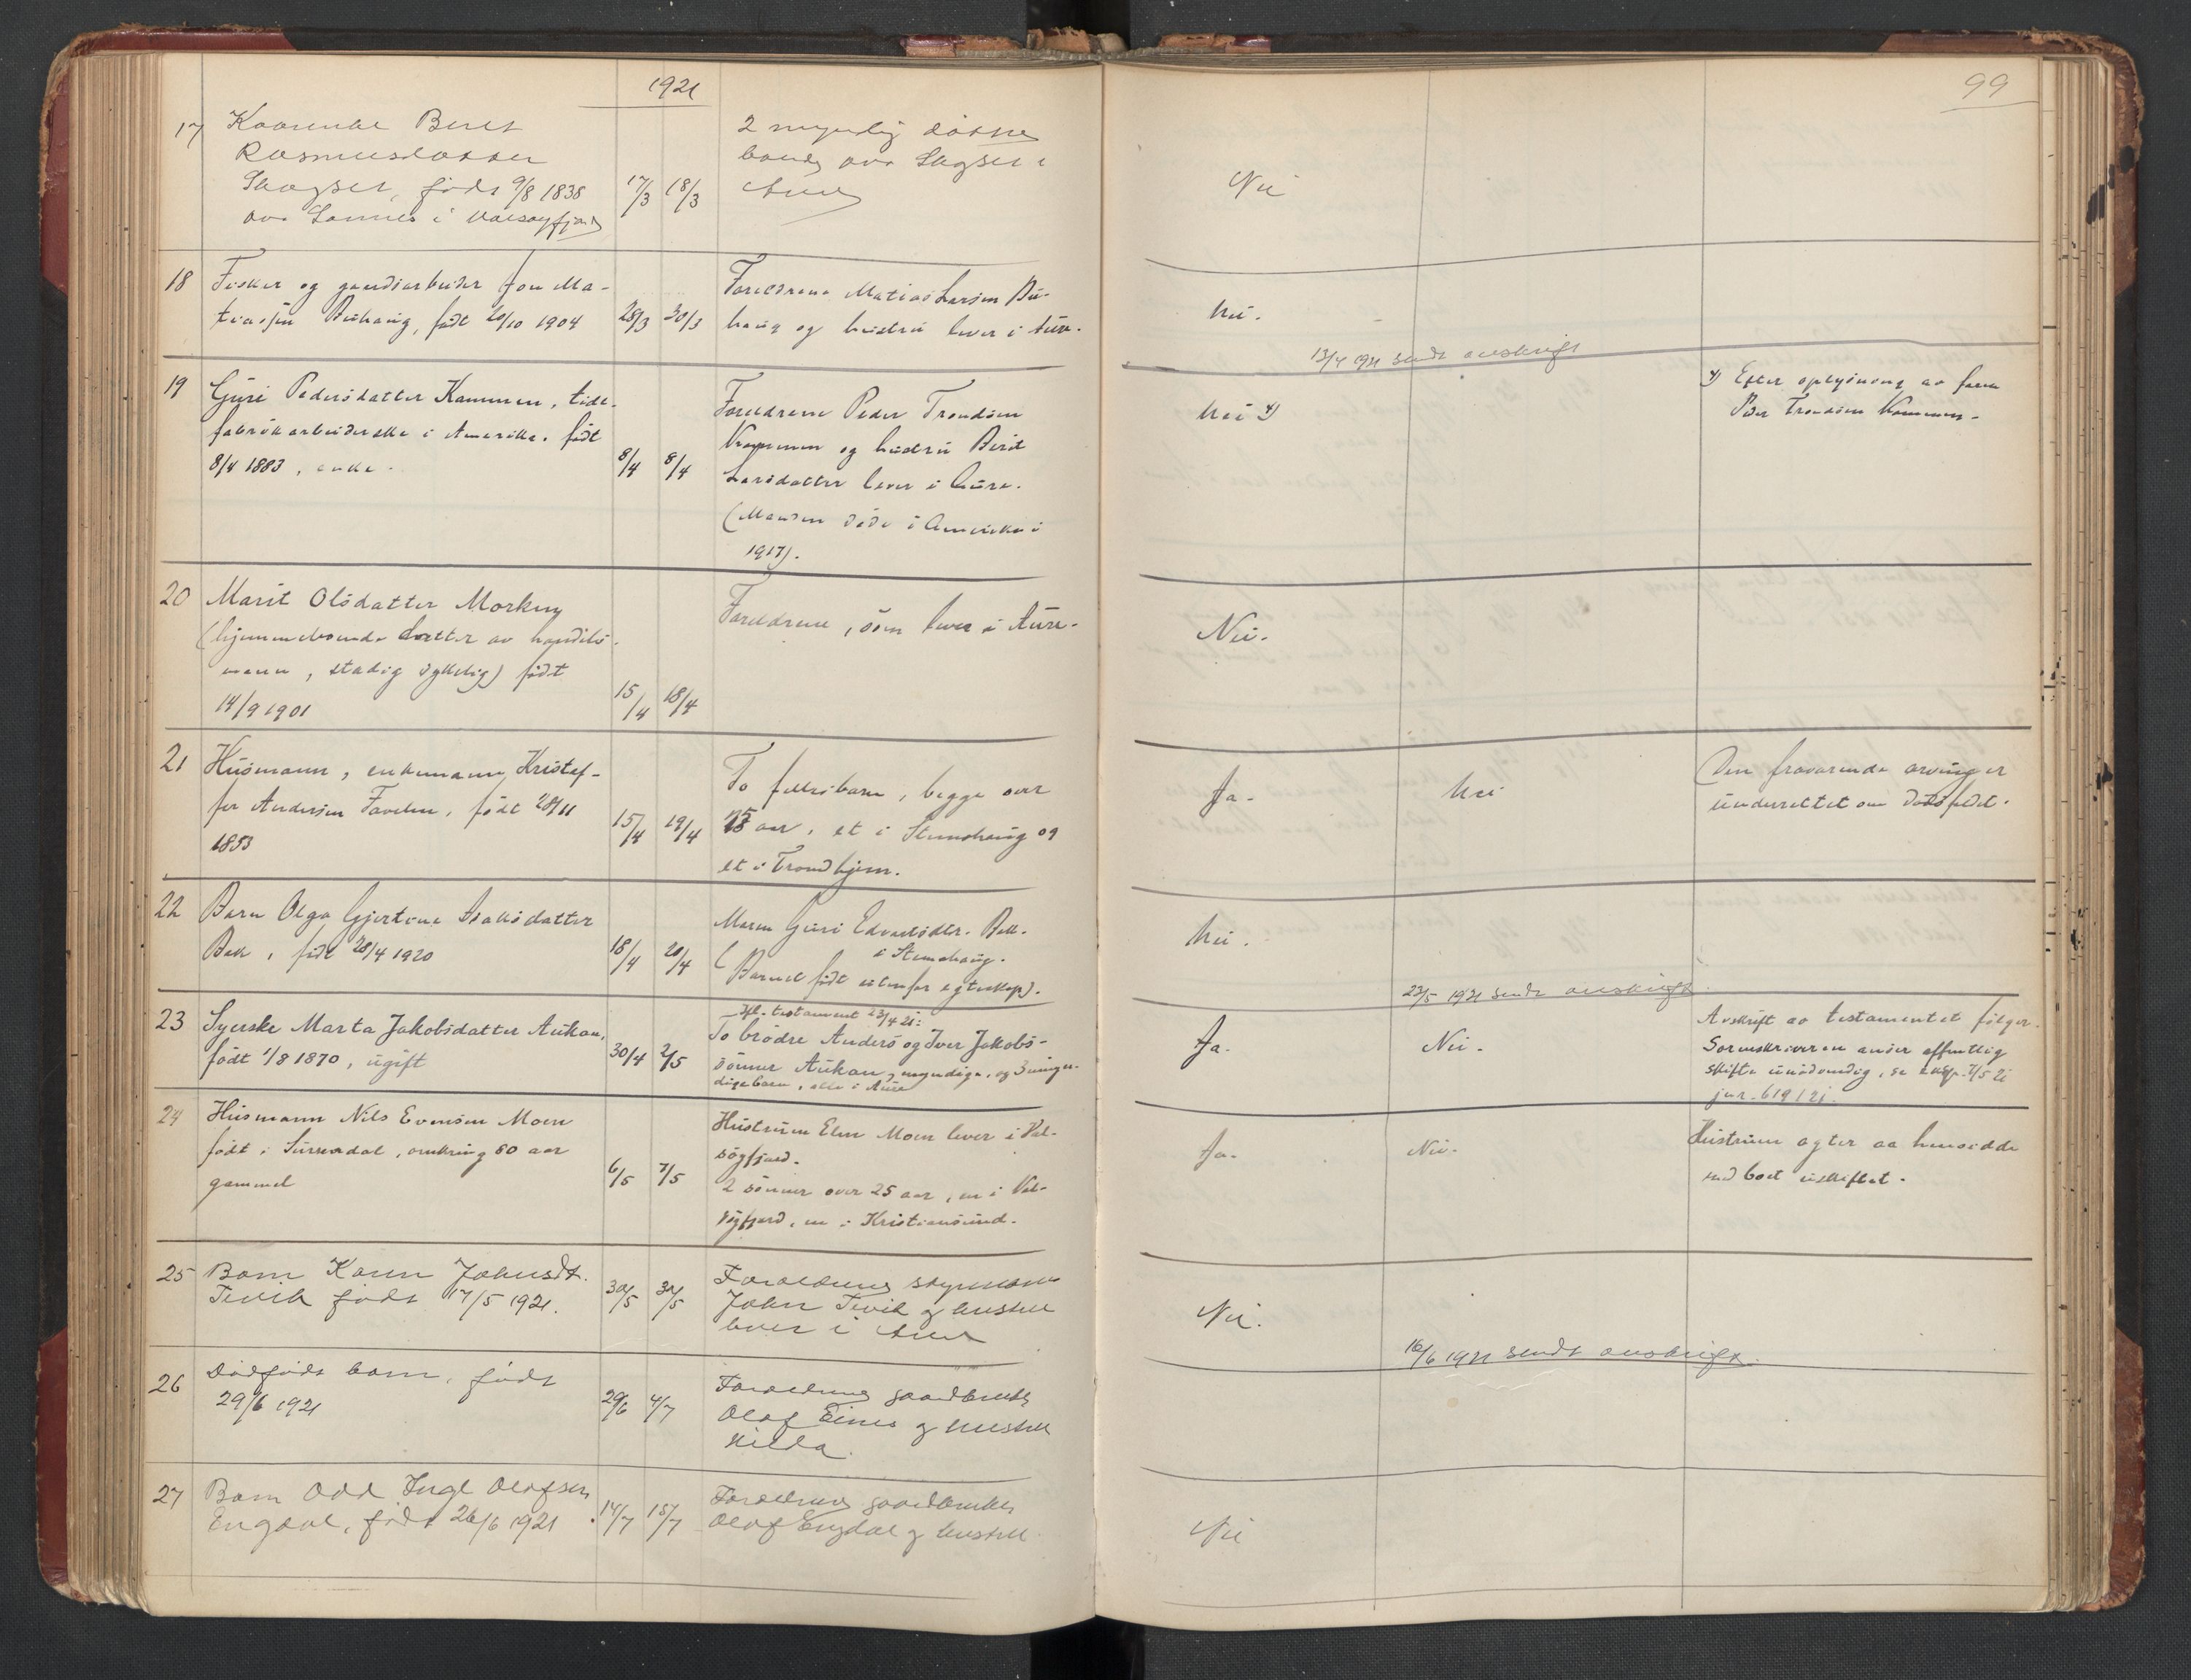 1921
99
17 Kaarenke Beret
Rasmusdatter
Skogset, født 9/8 1838
av Sannes i Valsøyfjord
17/3 18/3
2 myndig døttre
bande av Skogset i
Aure
Nei
18 Fisker og gaardsarbeider Jon Ma-
tiassen Buhaug, født 20/10 1904
28/3 30/3
Foreldrene Matias Larsen Bu-
haug og hustru lever i Aure.
Nei.
13/4 1921 sendt avskrift
19 Guri Pedersdatter Kammen, tidl.
fabrikarbeiderske i Amerika, født
8/4 1883, enke.
8/4 8/4
Foreldrene Peder Trondsen
Kammen og hustru Berit
Larsdatter lever i Aure.
(Manden døde i Amerika i
1917).
Nei x)
x) Efter oplysning av faren
Peder Trondsen Kammen.
20 Marit Olsdatter Morken
(hjemmeboende datter av handels-
mann, stadig sykelig) født
14/9 1901
15/4 18/4
Foreldrene, som lever i Aure.
Nei.
21 Husmann, enkemann Kristof-
fer Andersen Favelen, født 28/11
1853
15/4 19/4
To fellesbarn, begge over
25 aar, et i Stemshaug og
et i Trondhjem.
Ja.
Nei
Den fraværende arving er
underrettet om dødsfaldet.
22 Barn Olga Gjertine Isaksdatter
Bek, født 28/4 1920
18/4 20/4
Moren Guri Edvardsdtr. Bek.
i Stemshaug.
(Barnet født utenfor egteskap).
Nei.
23/5 1921 sendt avskrift
23 Syerske Marta Jakobsdatter Aukan,
født 1/8 1870, ugift
30/4 2/5
Ifl. testament 23/4 21:
To brødre Anders og Iver Jakobs-
sønner Aukan, myndige, og 3 umyn-
dige barn, alle i Aure
Ja.
Nei.
Avskrift av testamentet følger.
Sorenskriveren anser offentlig
skifte unødvendig, se eksp. 7/5 21
jnr. 619/21.
24 Husmann Nils Evensen Moen
født i Surendal, omkring 80 aar
gammel
6/5 7/5
Hustruen Elen Moen lever i Val-
søyfjord.
2 sønner over 25 aar, en i Val-
søyfjord, en i Kristiansund.
Ja.
Nei.
Hustruen agter aa hensidde
med boet uskiftet.
25 Barn Karen Johnsdt.
Tevik født 17/5 1921.
30/5 31/5
Foreldrene styrmann
John Tevik og hustru
lever i Aure
Nei.
16/6 1921 sendt avskrift.
26 Dødfødt barn, født
29/6 1921
29/6 4/7
Foreldrene gaardbruker
Olaf Eines og hustru
Hilda.
27 Barn Odd Inge Olafsen
Engdal, født 26/6 1921
14/7 15/7
Foreldrene gaardbruker
Olaf Engdal og hustru
Nei